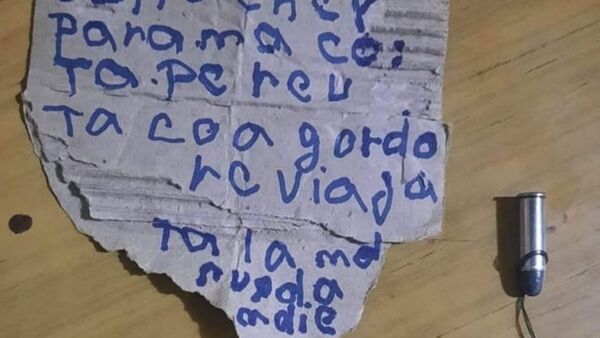 parama co:
Ta.pe reu
Ta coa gordo
re viaja
Ta la md
nuada
adie